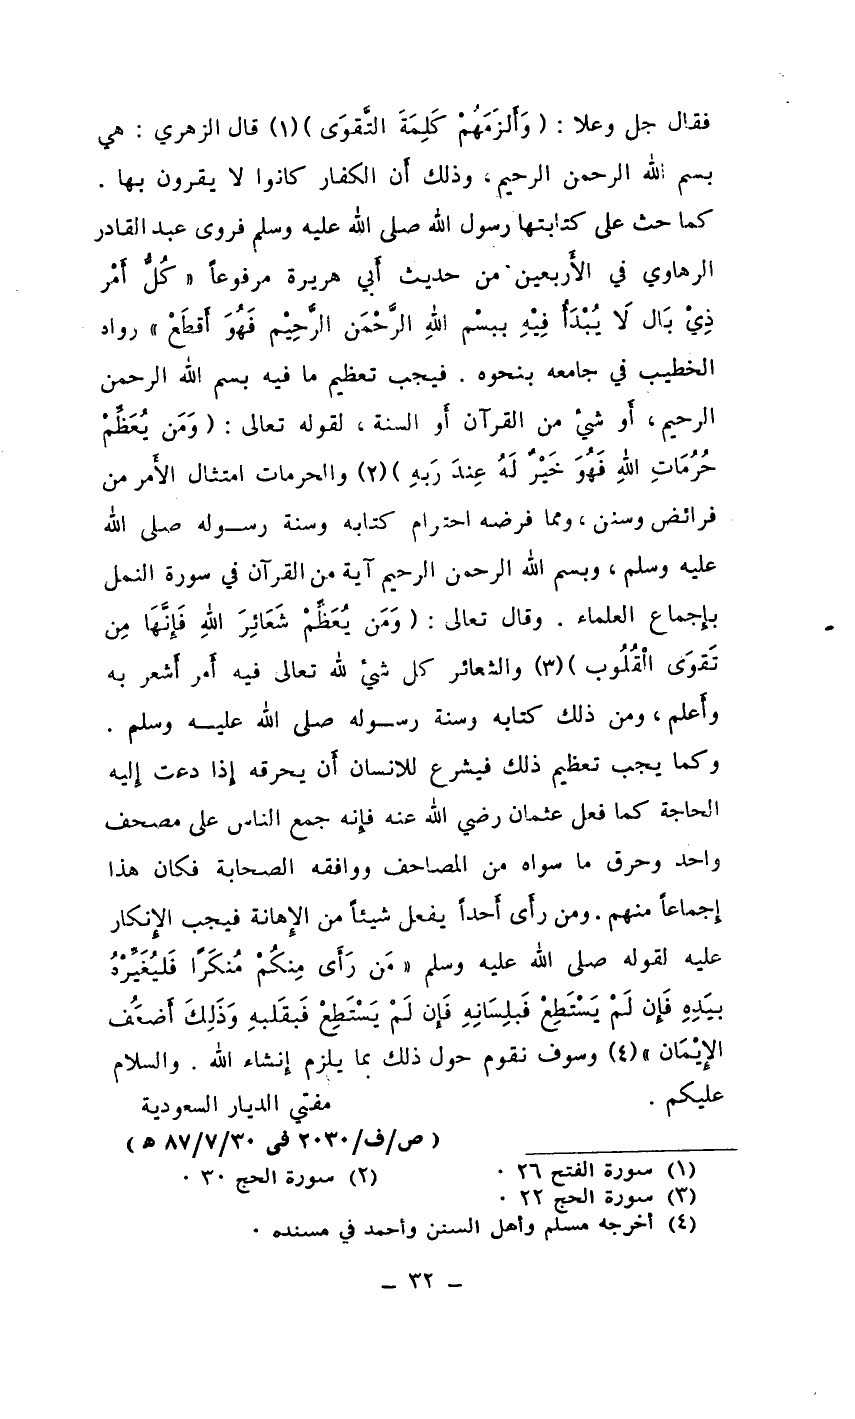 فقال جل وعلا : ( وَأَلزَمَهُمْ كَلِمَةَ التَّقوَى )(١) قال الزهري : هي
بسم الله الرحمن الرحيم ، وذلك أن الكفار كانوا لا يقرون بها .
كما حث على كتابتها رسول الله صلى الله عليه وسلم فروى عبد القادر
الرهاوي في الأربعين من حديث أبي هريرة مرفوعاً « كُلُّ أَمْر
ذِيْ بَال لَا يُبْدَأُ فِيْهِ بِبسْم اللهِ الرَّحْمَن الرَّحِيْم فَهُوَ أَقطَعْ » رواه
الخطيب في جامعه بنحوه . فيجب تعظيم ما فيه بسم الله الرحمن
الرحيم ، أو شيْ من القرآن أو السنة ، لقوله تعالى : ( وَمَن يُعَظِّمْ
حُرُمَاتِ اللهِ فَهُوَ خَيْرٌ لَهُ عِندَ رَبِهِ )(٢) والحرمات امتثال الأمر من
فرائض وسنن ، ومما فرضه احترام كتابه وسنة رسوله صلى الله
عليه وسلم ، وبسم الله الرحمن الرحيم آية من القرآن في سورة النمل
بإجماع العلماء . وقال تعالى : ( وَمَن يُعَظِّمْ شَعَائِرَ اللهِ فَإِنَّهَا مِن
تَقوَى الْقُلُوب )(٣) والشعائر كل شيْ لله تعالى فيه أمر أشعر به
وأعلم ، ومن ذلك كتابه وسنة رسوله صلى الله عليه وسلم .
وكما يجب تعظيم ذلك فيشرع للانسان أن يحرقه إذا دعت إليه
الحاجة كما فعل عثمان رضي الله عنه فإنه جمع الناس على مصحف
واحد وحرق ما سواه من المصاحف ووافقه الصحابة فكان هذا
إجماعاً منهم . ومن رأى أحداً يفعل شيئاً من الإهانة فيجب الإنكار
عليه لقوله صلى الله عليه وسلم « مَن رَأَى مِنكُمْ مُنكَرًا فَليُغَيِّرْهُ
بيَدِهِ فَإِن لَمْ يَسْتَطِعْ فَبلِسَانِهِ فَإِن لَمْ يَسْتَطِعْ فَبقَلبهِ وَذَلِكَ أَضعَفُ
الإِيْمَان »(٤) وسوف نقوم حول ذلك بما يلزم إنشاء الله . والسلام
عليكم .
مفتي الديار السعودية
( ص/ف/٢٠٣٠ في ٨٧/٧/٣٠ ه )
(١) سورة الفتح ٢٦ . (٢) سورة الحج ٣٠ .
(٣) سورة الحج ٢٢ .
(٤) أخرجه مسلم وأهل السنن وأحمد في مسنده .
– ٣٢ –